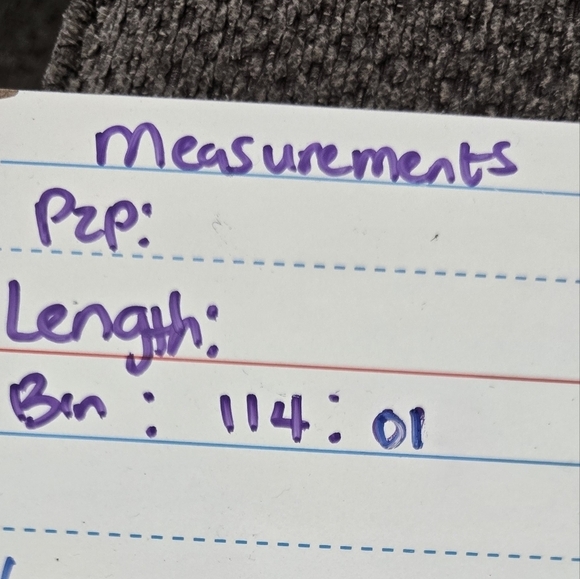 Measurements
P2P:
Length:
Bin : 114: 01